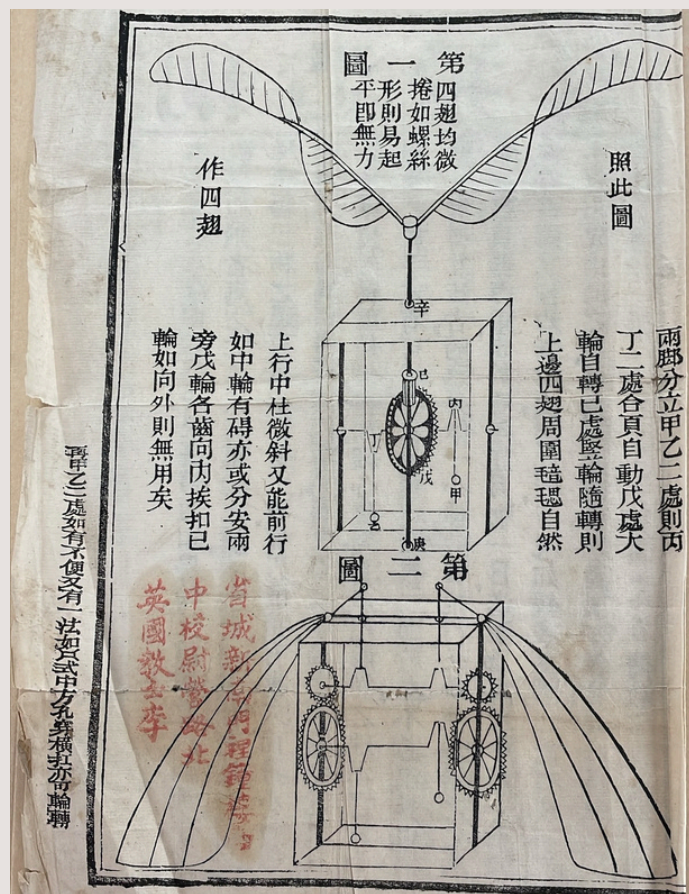 第一圖
四翅均微
捲如螺絲
形則易起
平即無力
照此圖
作四翅
兩脚分立甲乙二處則丙
丁二處合頁自動戊處大
輪自轉已處竪輪隨轉則
上邊四翅周圍
自然
上行中柱微斜又能前行
如中輪有碍亦或分安兩
旁戊輪各齒向內挨扣已
輪如向外則無用矣
辛
已
丙
丁
戊
甲
乙
庚
第二圖
省城新南門裡
中校尉營路北
英國教士李
再甲乙二處如有不便又有一法如
式中方孔穿橫
亦可輪轉